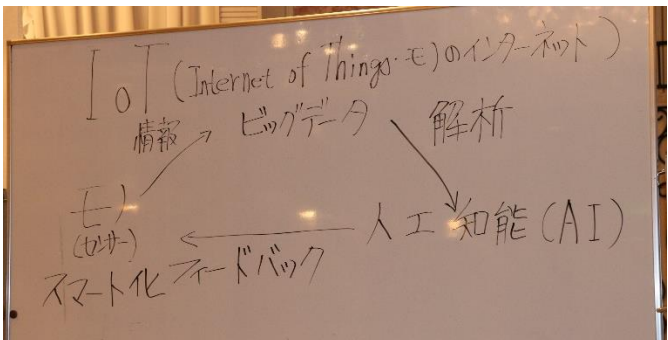 IoT (Internet of Things・モノのインターネット)
情報 ビッグデータ 解析
モノ 人工知能(AI)
(センサー)
スマート化 フィードバック